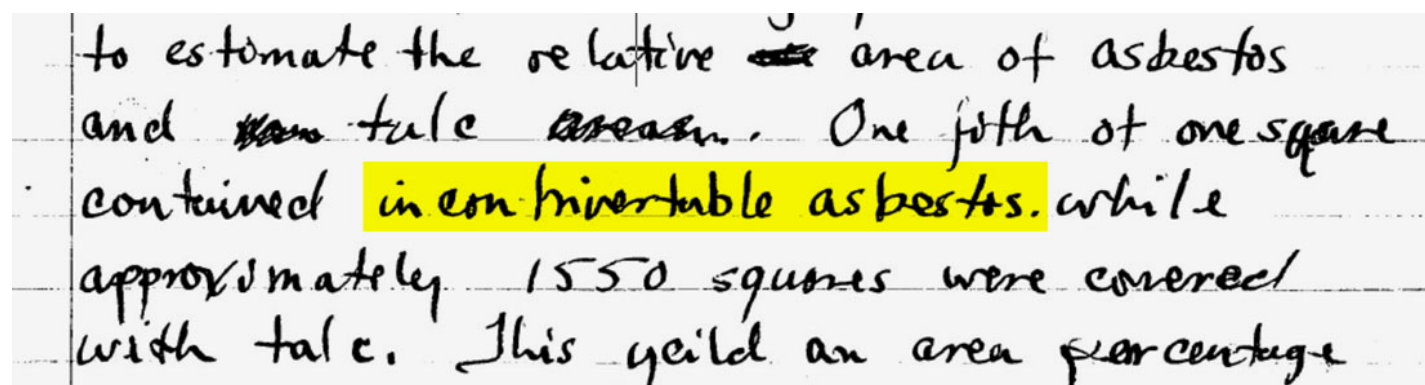 to estomate the relative area of asbestos
and talc. One fith of one square
contained incontrivertable asbestos. while
approximately 1550 squares were covered
with talc. This yeild an area percentage